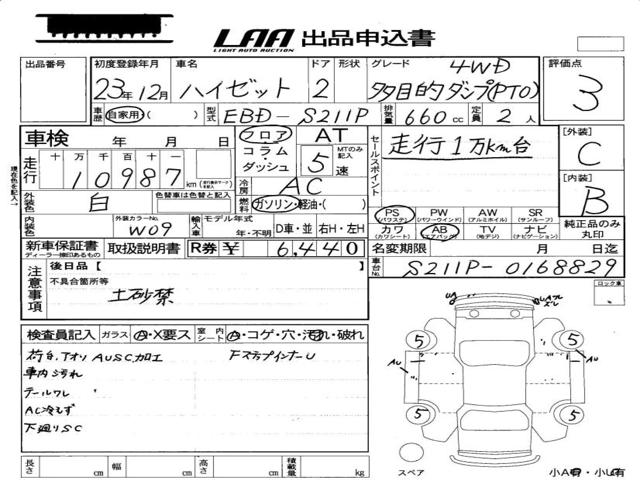 LAA 出品申込書
LIGHT AUTO AUCTION
出品番号
初度登録年月 車名 ドア 形状 グレード 評価点
23年12月 ハイゼット 2 4WD 多目的ダンプ(PTO) 3
車歴 自家用・( ) 型式 EBD-S211P 排気量 660cc 定員 2人
車検 年 月 日 フロア・コラム・ダッシュ AT 5速 MTのみ記入
走行 十 万 千 百 十 一 10987 km
冷房 AC
セールスポイント 走行1万km台
[外装] C
[内装] B
外装色 白 色替車は色替と記入 燃料 ガソリン・軽油・( )
現在色を記入→
内装色 外装カラーNo. W09 輸入車 モデル年式 年・不明 D車・並 右H・左H
PS (パワステ) PW (パワーウインド) AW (アルミホイル) SR (サンルーフ)
カワ (カワシート) AB (エアバッグ) TV (地デジ) ナビ (ナビゲーション)
純正品のみ丸印
新車保証書 ディーラー捺印あるもの 取扱説明書 R券 ¥ 6,440
名変期限 年 月 日迄
車台No. S211P-0168829
注意事項 後日品【 】
不具合箇所等
土砂禁
ロック車
検査員記入 ガラス A・X要ス 室内シート A・コゲ・穴・汚れ・破れ
荷台、アオリ AUSC加工 FステップインナーU
車内汚れ
テールワレ
AC冷えず
下廻りSC
UA
5 5
AU AU
5 5
スペア
小A有・小U有
長さ cm 幅 cm 高さ cm 積載量 kg